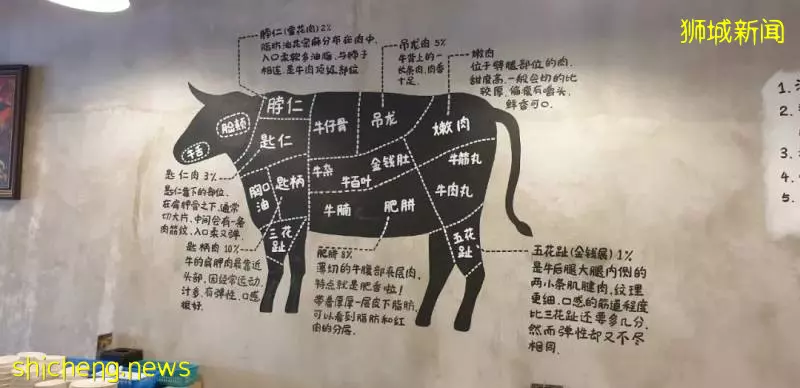 狮城新闻
脖仁(雪花肉)2%
脂肪油花密麻分布在肉中,
入口柔软多油脂,与脖子
相连,是牛肉顶级部位
吊龙肉 5%
牛背上的一
长条肉,肉香
十足.
嫩肉
位于臀腿部位的肉.
甜度高,一般会切的比
较厚,偏瘦有嚼头,
鲜香可口.
脸颊
牛舌
脖仁
匙仁
牛仔骨
吊龙
嫩肉
胸口
油
匙柄
牛杂
金钱肚
牛百叶
牛筋丸
牛肉丸
牛腩
肥胼
三花
趾
五花
趾
匙仁肉 3%
匙仁靠下的部位,
在肩胛骨之下,通常
切大片,中间会有一条
肉筋纹,入口柔又弹.
匙柄肉 10%
牛的肩胛肉最靠近
头部,因经常运动,
汁多,有弹性,口感
极好.
肥胼 8%
薄切的牛腹部夹层肉,
特点就是肥香啦!
带着厚厚一层皮下脂肪,
可以看到脂肪和红
肉的分层.
五花趾(金钱展) 1%
是牛后腿大腿内侧的
两小条肌腱肉,纹理
更细,口感的筋道程度
比三花趾还要多几分,
然而弹性却又不尽
相同.
1.
2.
3.
4.
5.
shicheng.news